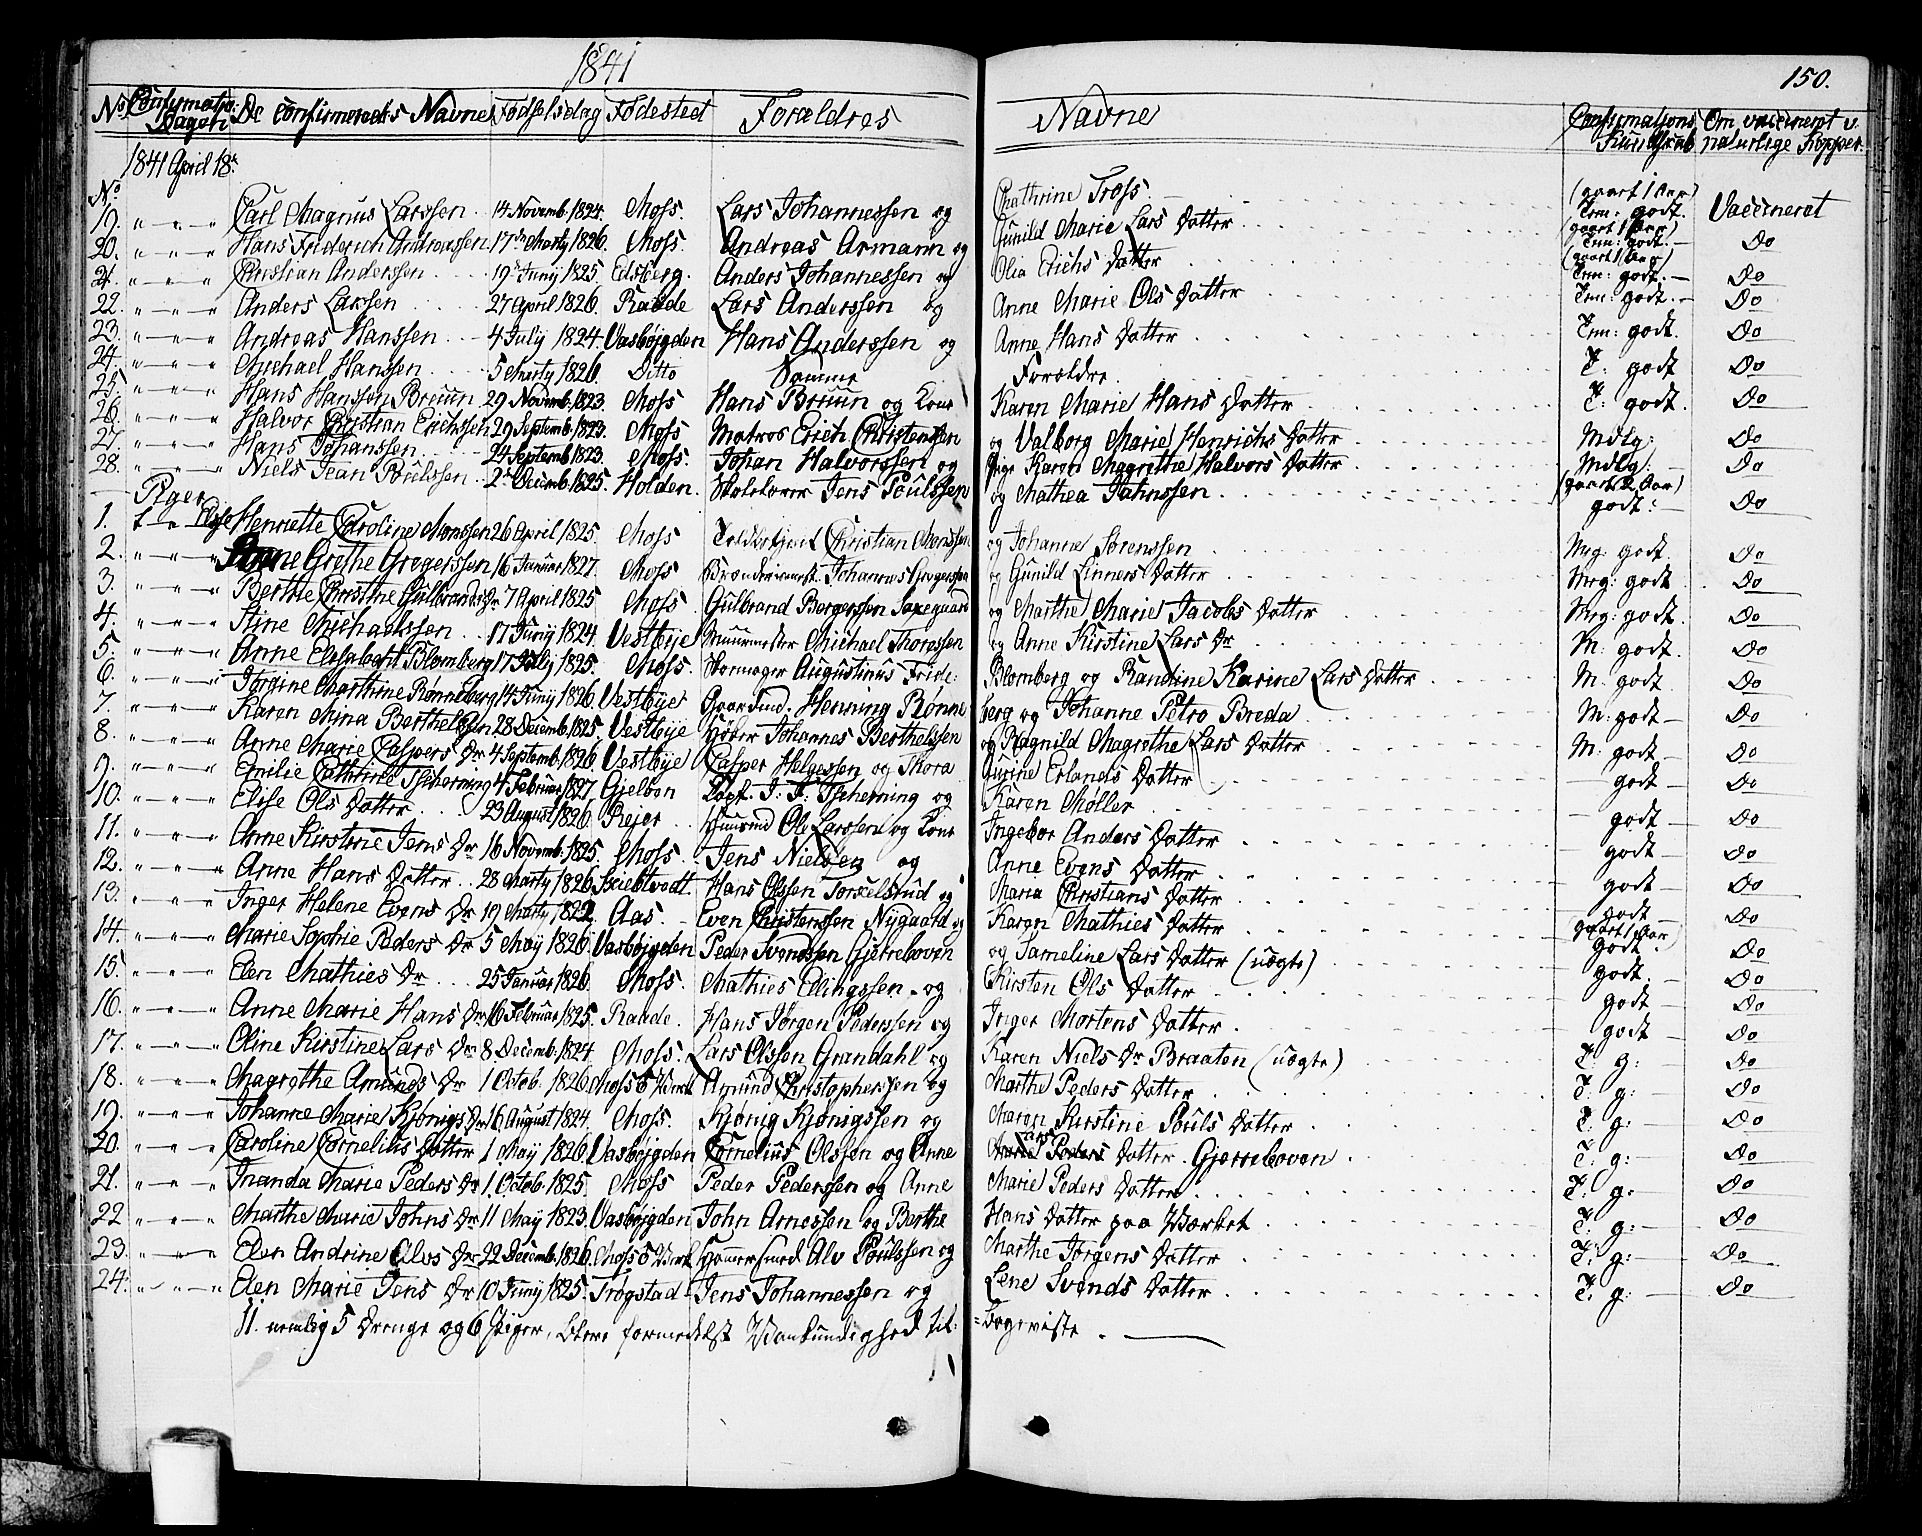 1841
150.
No Confirmations Dagen De Confirmeredes Navne Fødselsdag Fødested Forældres Navne Confirmations Kundskab Om vaccineret v. naturlige Kopper
1841 April 18de
No
19. " — " — " Carl Magnus Larssen 14 Novemb. 1824. Moss. Lars Johannessen og Cathrine Tross (gaart 1 Aar) Tm: godt. Vaccineret
20. " — " — " Hans Friderich Andreassen 17de Marty 1826. Moss. Andreas Armann og Gunild Marie Lars Datter (gaart 1 Aar) Tm: godt. — Do
21. " — " — " Christian Anderssen 19de Juny 1825 Edsberg. Anders Johannessen og Olia Erichs Datter (gaart 1 Aar) Tm: godt. — Do
22. " — " — " Anders Larssen 27 April 1826. Raade Lars Anderssen og Anne Marie Ols Datter Tm: godt. — Do
23. " — " — " Andreas Hanssen 4 July 1824. Vasbøjgden Hans Anderssen og Anne Hans Datter Tm: godt. Do
24. " — " — " Michael Hanssen 5 Marty 1826. Ditto Samme Forældre T: godt Do
25. " — " — " Hans Hanssen Bruun 29 Novemb. 1823. Moss Hans Bruun og Kone Karen Marie Hans Datter T: godt. Do
26. " — " — " Halvor Christian Erichssen 29 Septemb. 1823. Moss Matros Erich Christensen og Valborg Marie Henrichs Datter Mdlg: Do
27. " — " — " Hans Johanssen 24 Septemb. 1823. Moss. Johan Halvorssen og Pige Karen Magrethe Halvors Datter Mdlg: — Do
28. " — " — " Niels Jean Poulssen 2de Decemb. 1825. Holden. Skolelærer Jens Poulssen og Mathea Jahnssen (gaart 2 Aar) godt: — Do
Piger
1. Else Henrette Caroline Monssen 26 April 1825. Moss Toldbetjent Christian Monssen og Johanne Sørenssen Mg: godt. Do
2. " — " — " Anne Grethe Gregerssen 16 Januar 1827. Moss Johannes Gregerssen og Gunild Linners Datter Mg: godt. Do
3. " — " — " Berthe Christine Gulbrands Dr 7 April 1825 Moss Gulbrand Bergerssen Saxegaard og Marthe Marie Jacobs Datter Mg: godt. Do
4. " — " — " Stine Michaelssen 17 Juny 1824. Vestbye Muurmester Michael Thoressen og Anne Kirstine Lars Dr M: godt. Do
5. " — " — " Anne Elisabeth Blomberg 17 July 1825. Moss. Skomager Augustinus Fride: Blomberg og Randine Karine Lars Datter M: godt. Do
6. " — " — " Jørgine Marthine Rønneberg 14 Juny 1826. Vestbye Gaardmd. Henning Rønne berg og Johanne Petro Breda M: godt — Do
7. " — " — " Karen Mina Berthelssen 28 Decemb. 1825. Vestbye Johannes Berthelssen og Ragnild Magrethe Lars Datter M: godt — Do
8. " — " — " Anne Marie Caspers Dr 4 Septemb. 1826. Vestbye Casper Helgessen og Thora Gurine Erlands Datter godt — Do
9. " — " — " Emilie Cathrine Tscherning 4 Februar 1827. Gjelbon Capt. J: F: Tscherning og Karen Møller — godt — Do
10. " — " — " Elise Ols Datter 23 August 1826. Rejer Huusmd Ole Larssen og Kone Ingebor Anders Datter — godt — Do
11. " — " — " Anne Kirstine Jens Dr 16 Novemb. 1825. Moss Jens Nielsen og Anne Evens Datter — godt — Do
12. " — " — " Anne Hans Datter 28 Marty 1826. Skiebtvedt. Hans Olssen Torselsrud og Maria Christians Datter — godt — Do
13. " — " — " Inger Helene Evens Dr 19 Marty 1822. Aas. Even Christenssen Nygaard og Karen Mathies Datter gaart 1 Aar) godt. Do
14. " — " — " Marie Sophie Peders Dr 5 May 1826. Vasbøjgden Peder Svendssen Gjerreboven og Sameline Lars Datter (uægte) godt — Do
15. " — " — " Elen Mathies Dr 25 Januar 1826. Moss. Mathies Ellingssen og Kirsten Ols Datter godt — Do
16. " — " — " Anne Marie Hans Dr 16 Februar 1825. Raade. Hans Jørgen Pederssen og Inger Mortens Datter — godt — Do
17. " — " — " Oline Kirstine Lars Dr 8 Decemb. 1824. Moss. Lars Olssen Grandahl og Karen Niels Dr Braaten (uægte) T: g: Do
18. " — " — " Magrethe Amunds Dr 1 Octob. 1826. Moss Værk Amund Christopherssen og Marthe Peders Datter T: g: Do
19. " — " — " Johanne Marie Kjønigs Dr 16 August 1824. Moss. Kjønig Kjønigssen og Maren Kirstine Pouls Datter T: g: Do
20. " — " — " Caroline Cornelius Datter 1 May 1826. Vasbøjgden Cornelius Olssen og Anne Lars Datter Gjerreboven T: g: — Do
21. " — " — " Inanda Marie Peders Dr 1 Octob. 1825. Moss Peder Pederssen og Anne Marie Peders Datter T: g: Do
22 " — " — " Marthe Marie Johns Dr 11 May 1823. Vasbøjgden John Arnessen og Berthe Hans Datter paa Værket T: g: — Do
23. " — " — " Elen Andrine Alvs Dr 22 Decemb. 1826. Moss Værk Hamersmed Alv Poulssen og Marthe Jørgens Datter T: g: — Do
24. " — " — " Elen Marie Jens Dr 10 Juny 1825. Trøgstad Jens Johannessen og Lene Svends Datter T: g: — Do
11. nemlig 5 Drenge og 6 Piger, bleve formedelst Vankundighed til: =bageviste.